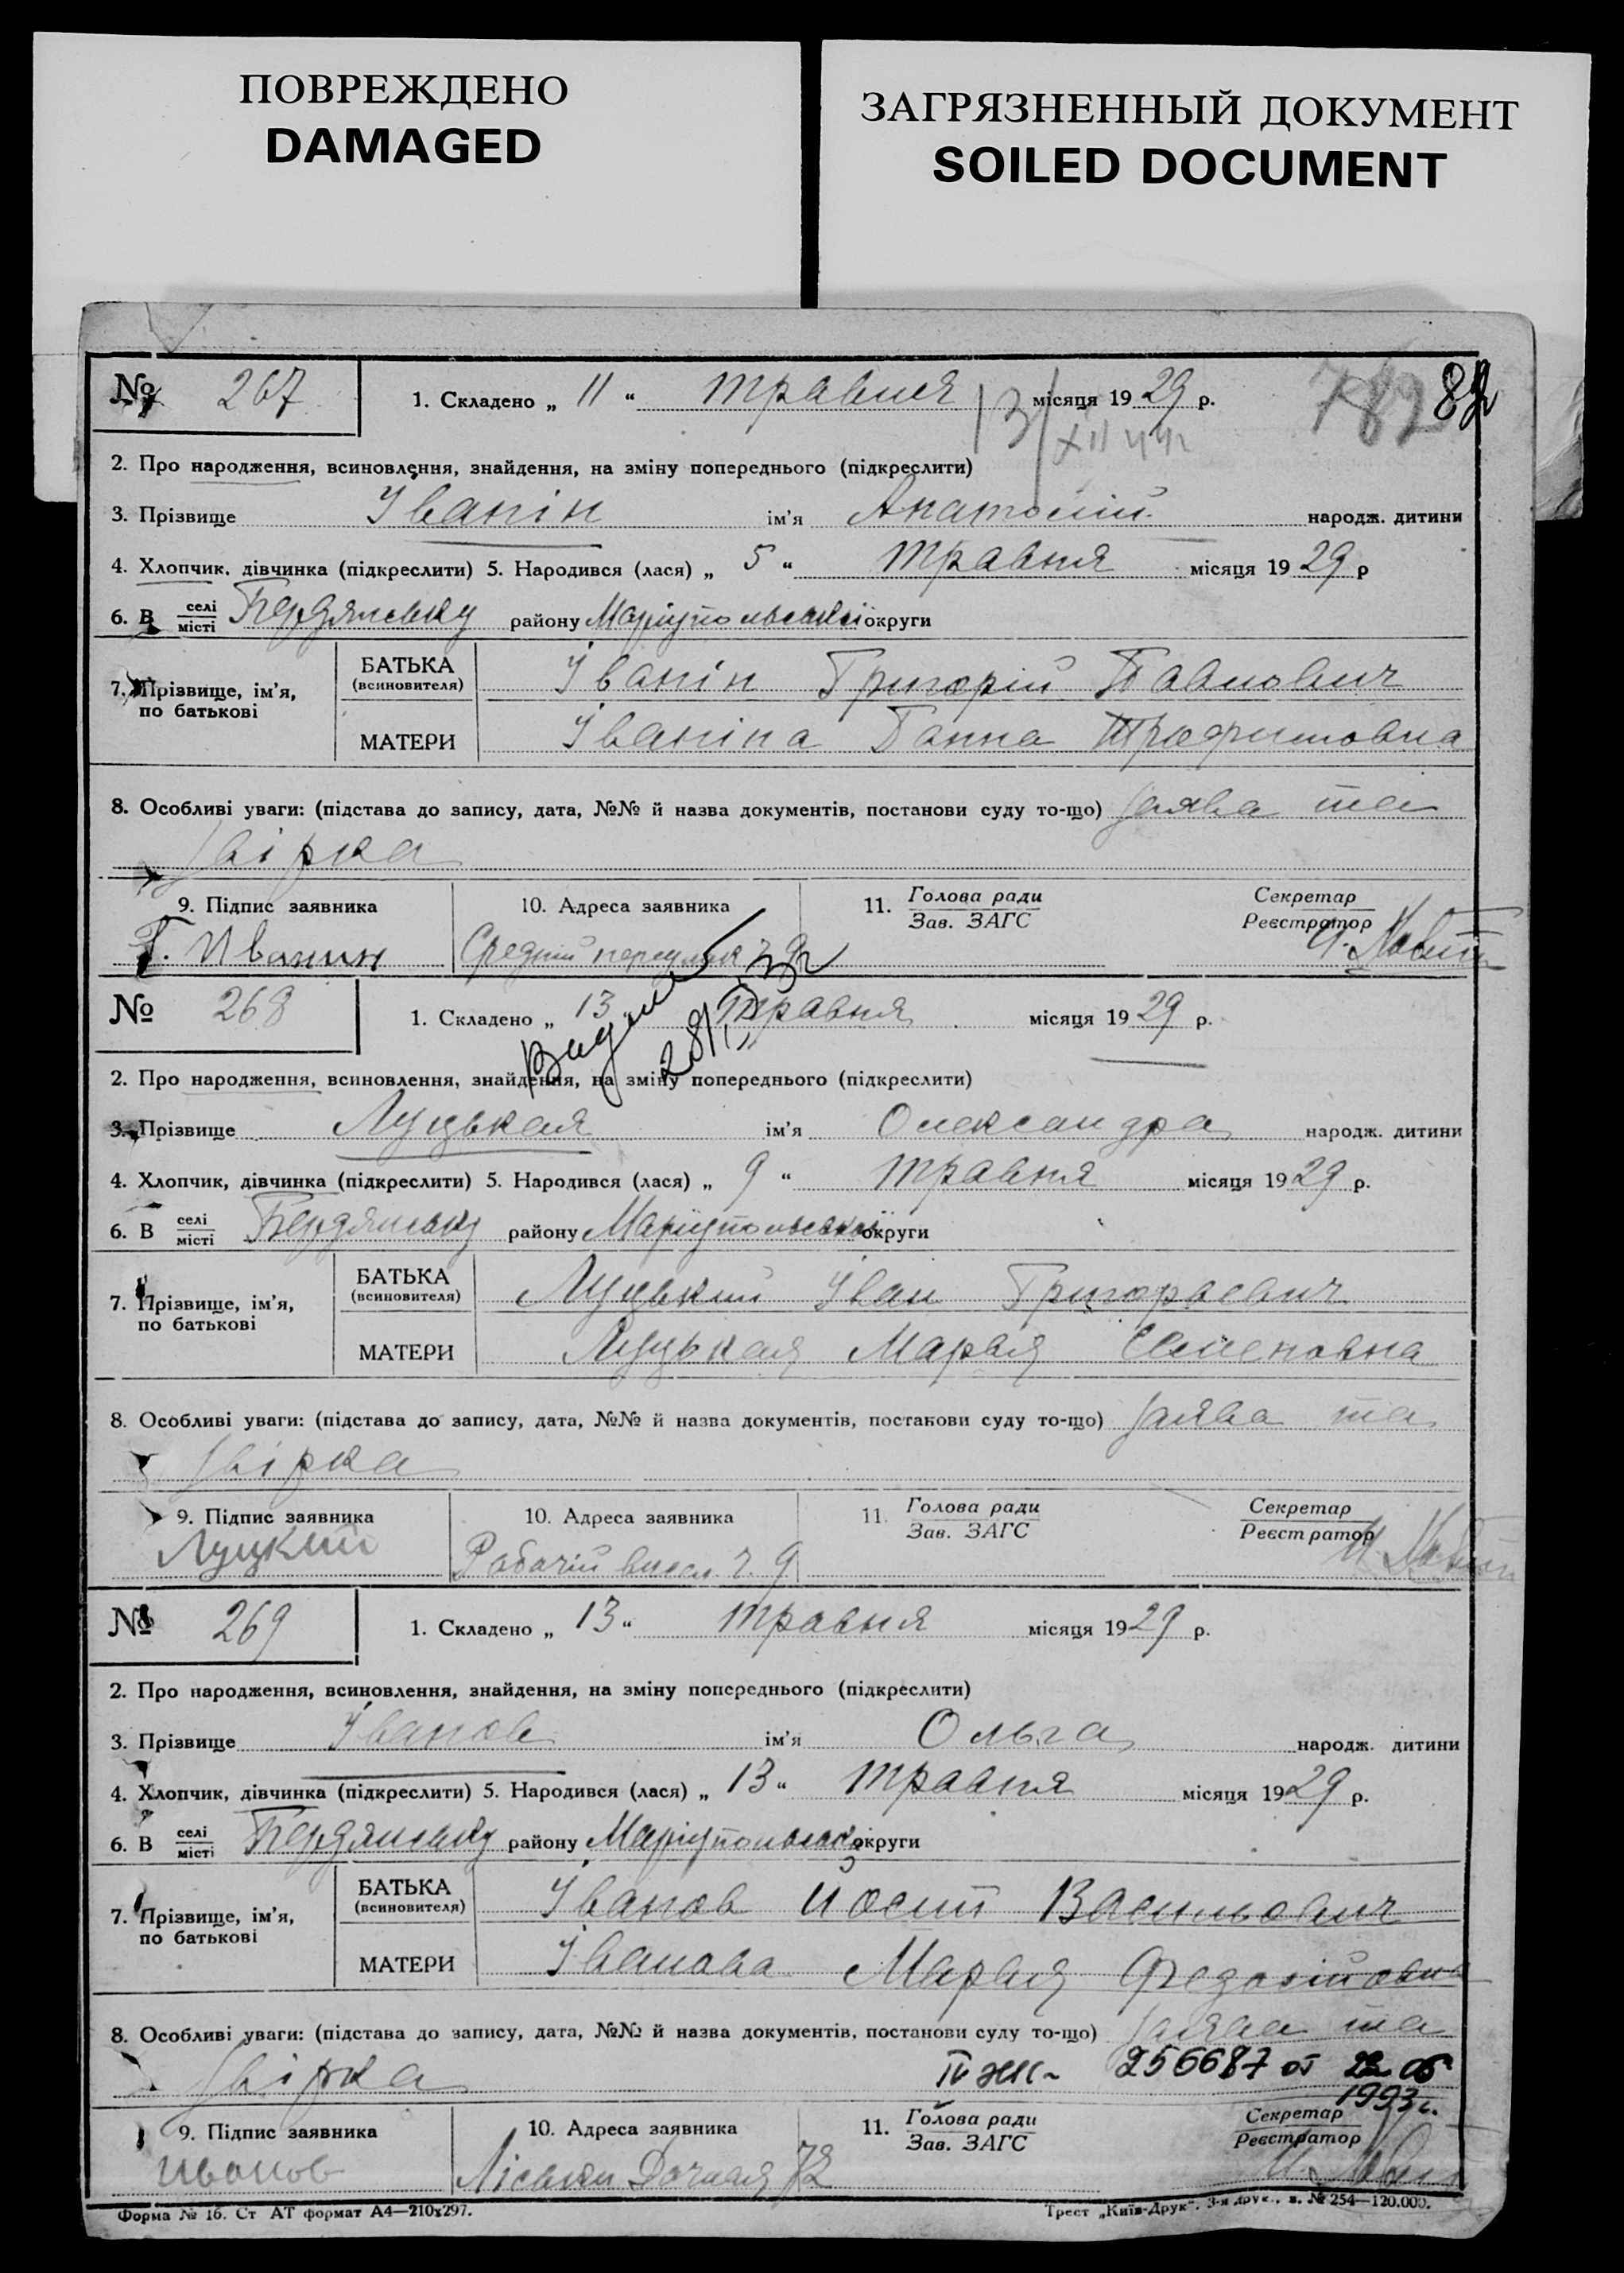 ПОВРЕЖДЕНО
DAMAGED
ЗАГРЯЗНЕННЫЙ ДОКУМЕНТ
SOILED DOCUMENT
№ 267
1. Складено „ 11 “ травня місяця 1929 р.
2. Про народження, всиновлення, знайдення, на зміну попереднього (підкреслити)
3. Прізвище Іванін ім'я Анатолій народж. дитини
4. Хлопчик, дівчинка (підкреслити) 5. Народився (лася) „ 5 “ травня місяця 1929 р
6. В селі місті Бердянську району Маріупольської округи
7. Прізвище, ім'я, по батькові
БАТЬКА (всиновителя) Іванін Григорій Павлович
МАТЕРИ Іваніна Ганна Трофимовна
8. Особливі уваги: (підстава до запису, дата, №№ й назва документів, постанови суду то-що) заява та
звірка
9. Підпис заявника 10. Адреса заявника 11. Голова ради Зав. ЗАГС Секретар Реєстратор
Г. Иванин Средній переулок
№ 268
1. Складено „ 13 “ травня місяця 1929 р.
2. Про народження, всиновлення, знайдення, на зміну попереднього (підкреслити)
3. Прізвище Луцькая ім'я Олександра народж. дитини
4. Хлопчик, дівчинка (підкреслити) 5. Народився (лася) „ 9 “ травня місяця 1929 р.
6. В селі місті Бердянську району Маріупольської округи
7. Прізвище, ім'я, по батькові
БАТЬКА (всиновителя) Луцький Іван Григорьевич
МАТЕРИ Луцькая Марья Семеновна
8. Особливі уваги: (підстава до запису, дата, №№ й назва документів, постанови суду то-що) заява та
звірка
9. Підпис заявника 10. Адреса заявника 11. Голова ради Зав. ЗАГС Секретар Реєстратор
Луцкий Рабочій ч. 9
№ 269
1. Складено „ 13 “ травня місяця 1929 р.
2. Про народження, всиновлення, знайдення, на зміну попереднього (підкреслити)
3. Прізвище Іванов ім'я Ольга народж. дитини
4. Хлопчик, дівчинка (підкреслити) 5. Народився (лася) „ 13 “ травня місяця 1929 р.
6. В селі місті Бердянську району Маріупольської округи
7. Прізвище, ім'я, по батькові
БАТЬКА (всиновителя) Іванов Йосип Васильович
МАТЕРИ Іванова Марья
8. Особливі уваги: (підстава до запису, дата, №№ й назва документів, постанови суду то-що) заява та
звірка IV ЖС 256687 от 22 05
1993 г.
9. Підпис заявника 10. Адреса заявника 11. Голова ради Зав. ЗАГС Секретар Реєстратор
Иванов Дачная 72
Форма № 16. Ст АТ формат А4—210х297.
Трест „Київ-Друк“. 3-я друк., з. № 254—120.000.